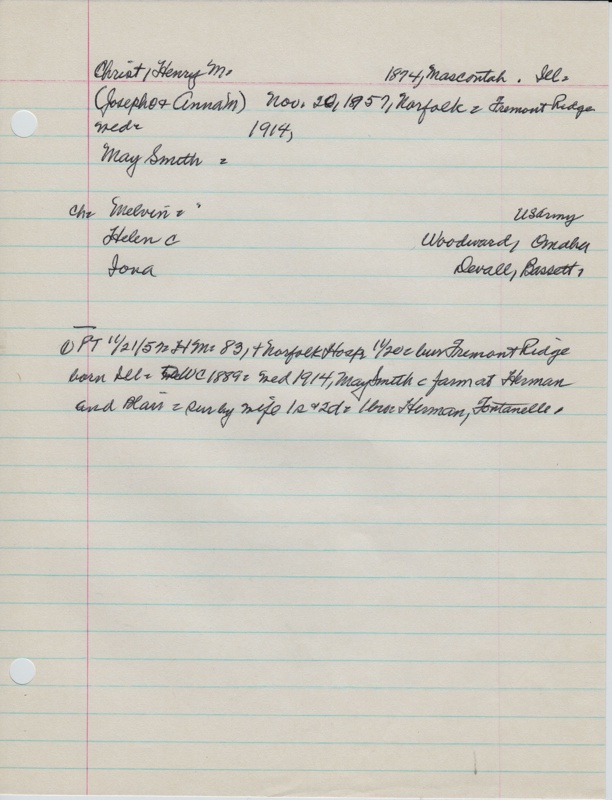 Christ, Henry M. 1874, Mascoutah. Ill=
(Joseph & Anna M) Nov. 20, 1957, Norfolk = Fremont Ridge
med= 1914,
May Smith =
ch= Melvin = " US Army
Helen C Woodward, Omaha
Iona Devall, Bassett =
PT 11/21/57= HM= 83, + Norfolk Hosp 11/20= bur Fremont Ridge
born Ill= WC 1889= med 1914, May Smith = farm at Herman
and Blair = sur by wife 1s & 2d= 1bro= Herman, Fontanelle.